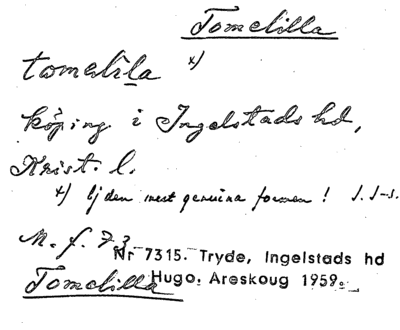 Tomelilla
tomelila x)
köping i Ingelstads hd,
Krist. l.
x) Ej den mest genuina formen! J. J-s.
M. f. 73
Nr 7315. Tryde, Ingelstads hd
Tomelilla Hugo Areskoug 1959.